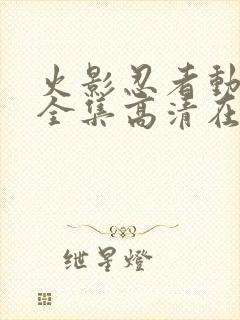 火影忍者動
全集高清在
紲星燈